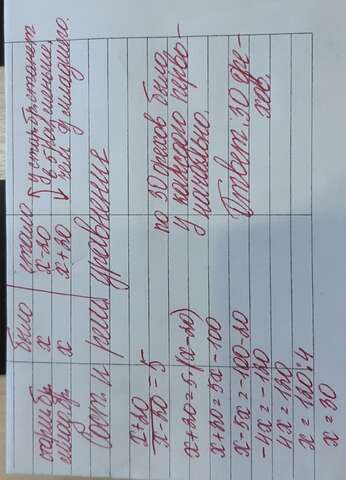 было стало
старш.бр. x x-20 у старш.бр. станет
младш.бр. x x+20 в 5 раз меньше,
чем у младшего.
Сост. и реш. уравнение
x+20
x-20 = 5
x+20=5·(x-20)
x+20=5x-100
x-5x=-100-20
-4x=-120
4x=120
x=120:4
x=30
по 30 орехов было
у каждого перво-
начально.
Ответ: 30 оре-
хов.